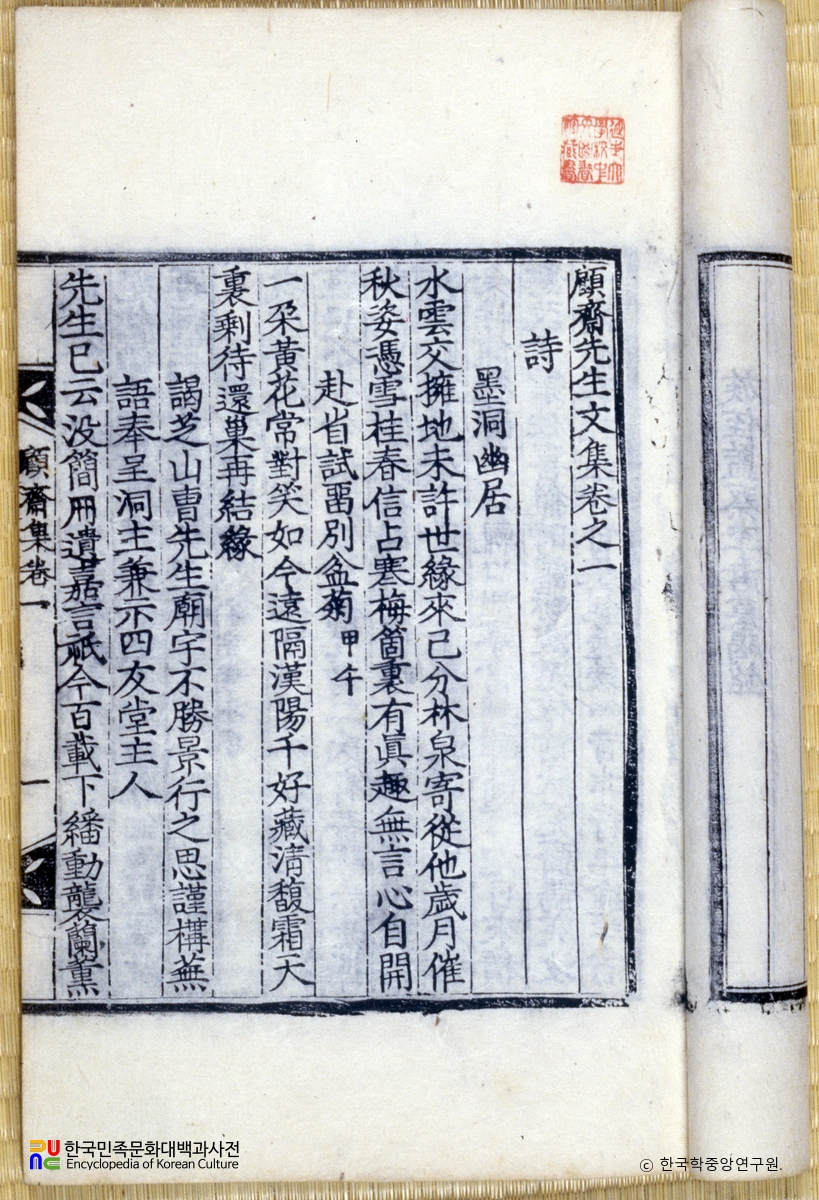 顧齋先生文集卷之一
詩
墨洞幽居
水雲交擁地未許世緣來己分林泉寄從他歲月催
秋姿憑雪桂春信占寒梅箇裏有眞趣無言心自開
赴省試畱別盆菊甲午
一朶黃花常對笑如今遠隔漢陽千好藏淸馥霜天
裏剩待還巢再結緣
謁芝山曺先生廟宇不勝景行之思謹構蕪
語奉呈洞主兼示四友堂主人
先生已云沒簡冊遺嘉言祗今百載下繙動襲蘭薰
顧齋集卷一
一
한국민족문화대백과사전
Encyclopedia of Korean Culture
ⓒ 한국학중앙연구원.